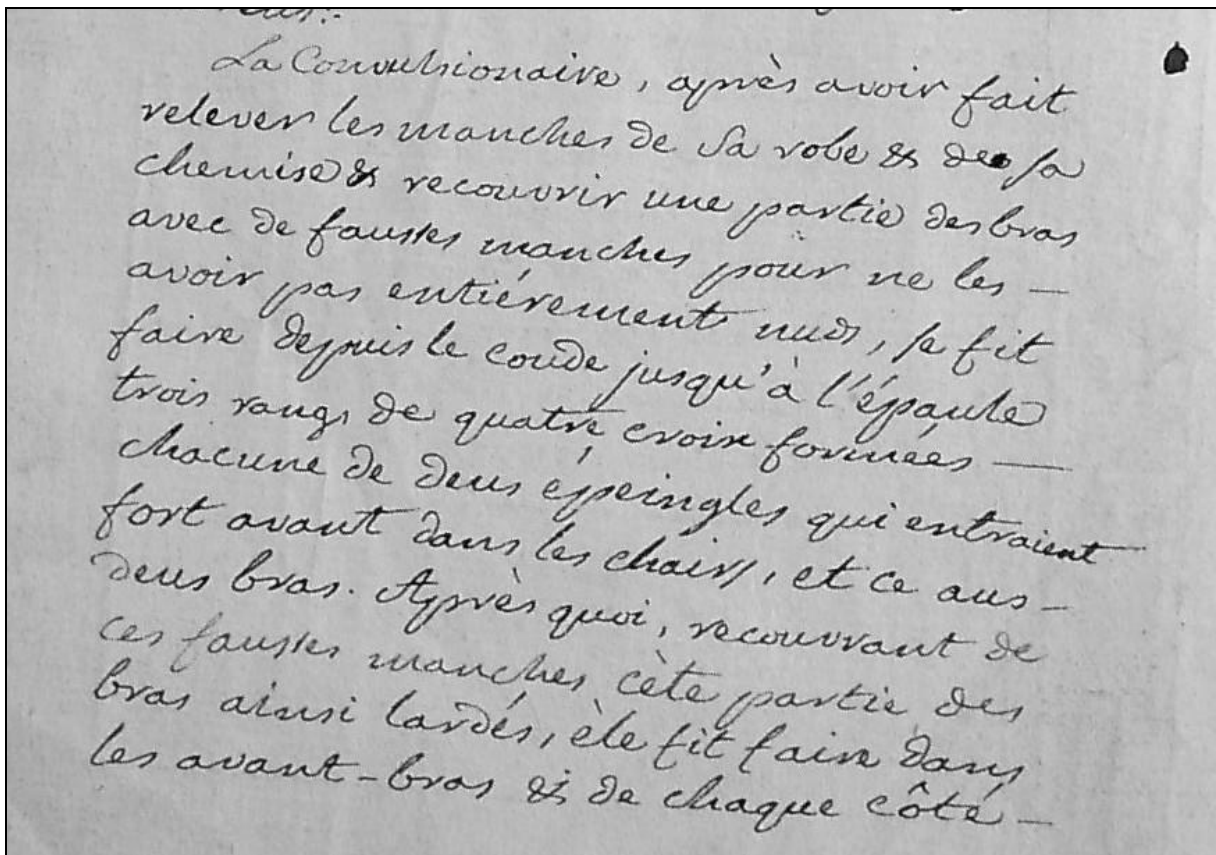 La Convulsionaire, après avoir fait
relever les manches de sa robe & de sa
chemise & recouvrir une partie des bras
avec de fausses manches pour ne les —
avoir pas entiérement nuds, se fit
faire depuis le coude jusqu'à l'épaule
trois rangs de quatre croix formées —
chacune de deus épeingles qui entraient
fort avant dans les chairs, et ce aus —
deus bras. Après quoi, recouvrant de
ces fausses manches cète partie des
bras ainsi lardés, èle fit faire dans
les avant-bras & de chaque côté —